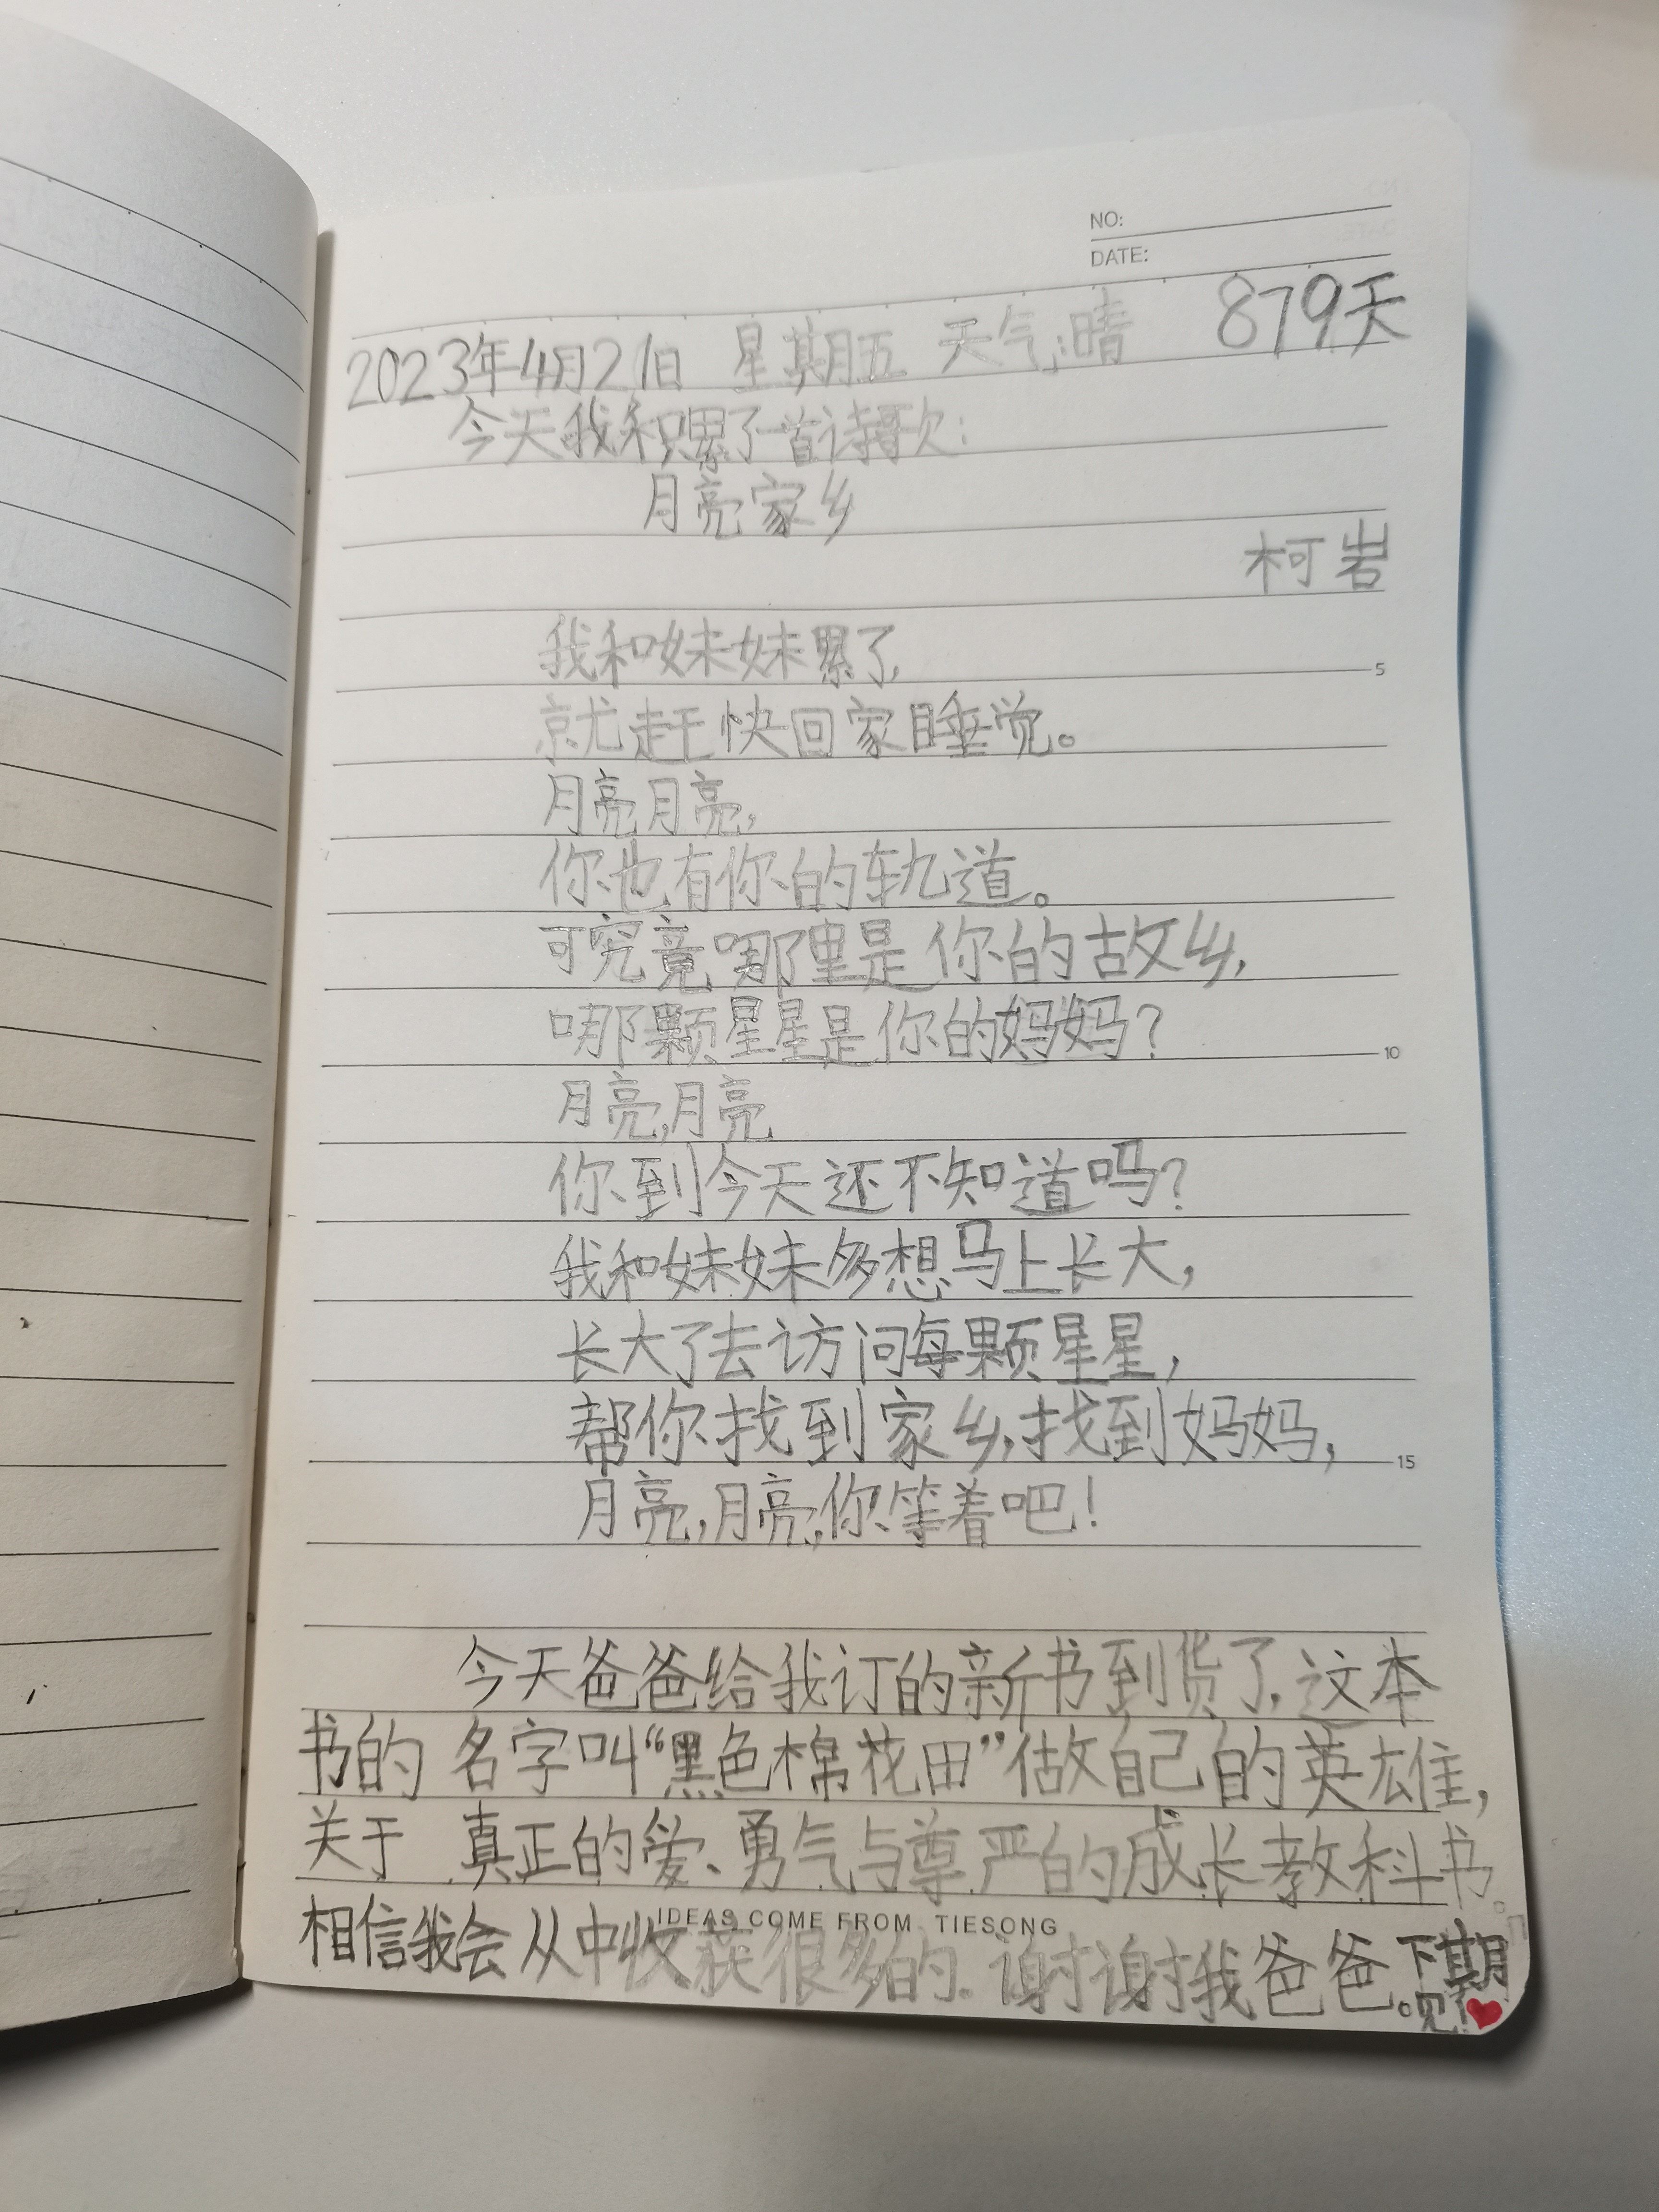 NO:
DATE:
2023年4月21日 星期五 天气:晴 879天
今天我积累了一首诗歌:
月亮家乡
柯岩
我和妹妹累了,
就赶快回家睡觉。
5
月亮月亮,
你也有你的轨道。
可究竟哪里是你的故乡,
哪颗星星是你的妈妈?
10
月亮,月亮
你到今天还不知道吗?
我和妹妹多想马上长大,
长大了去访问每颗星星,
帮你找到家乡,找到妈妈,
15
月亮,月亮,你等着吧!
今天爸爸给我订的新书到货了,这本
书的名字叫“黑色棉花田”做自己的英雄,
关于真正的爱、勇气与尊严的成长教科书。
IDEAS COME FROM TIESONG
相信我会从中收获很多的.谢谢我爸爸。下期
见!